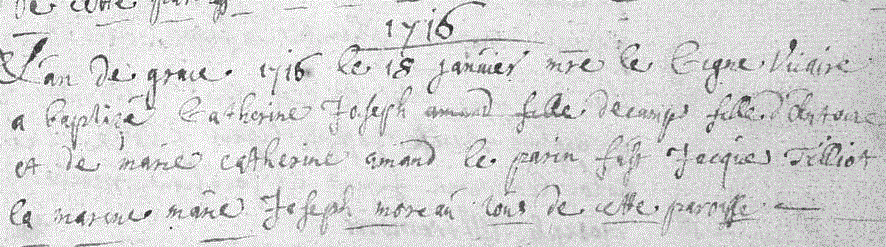 de cette
1716
L'an de grace 1716 le 18 janvier mre le Cigne Vicaire
a baptizé Catherine Joseph amand fille decamps fille d'Antoine
et de marie catherine amand le parin fust Jacque Tilliot
la marine marie Joseph moreau tous de cette paroisse